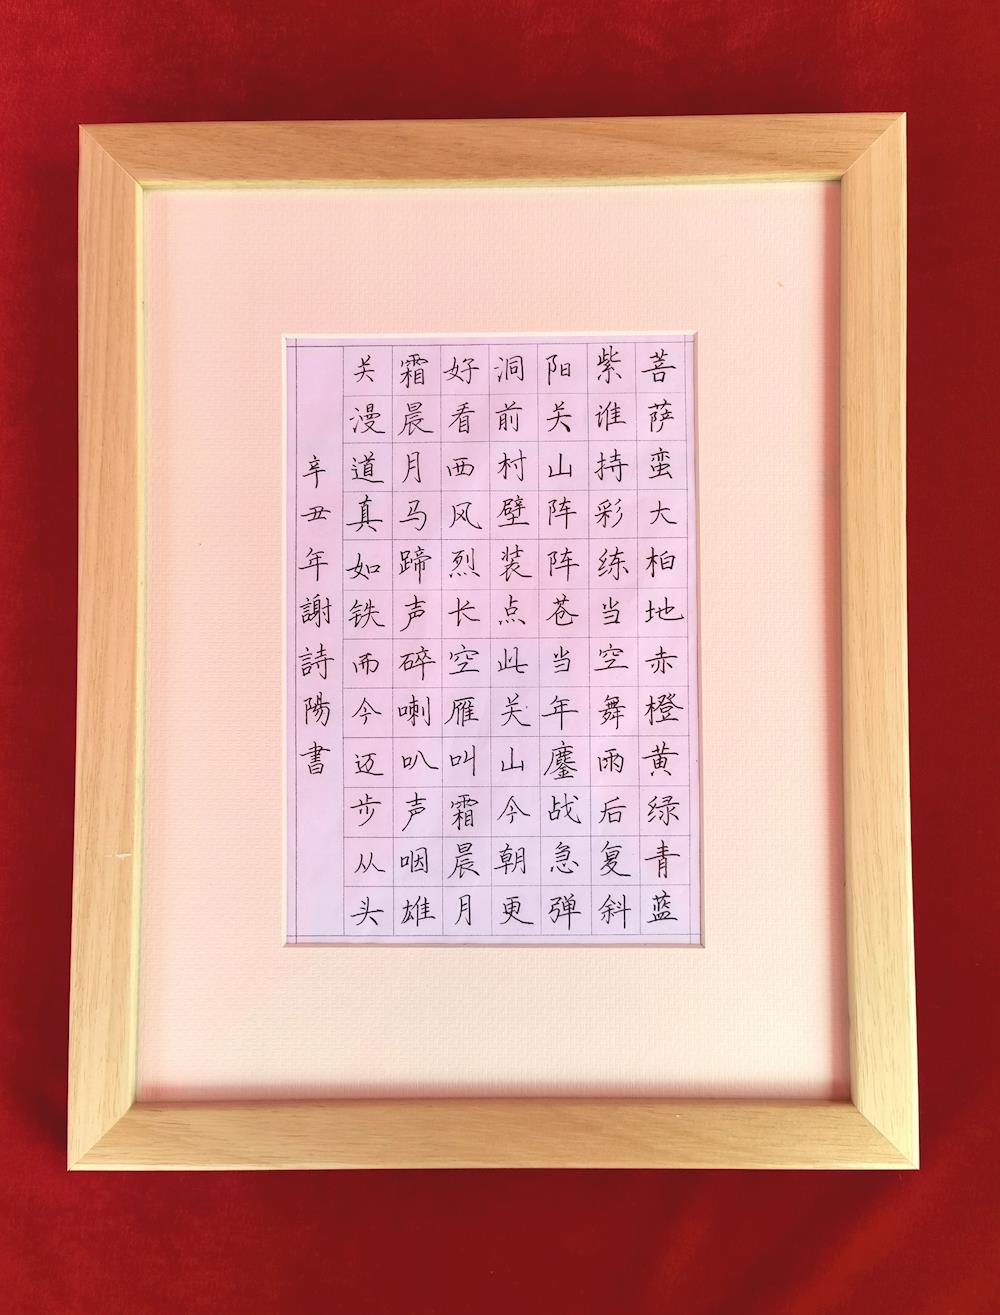 菩萨蛮大柏地赤橙黄绿青蓝
紫谁持彩练当空舞雨后复斜
阳关山阵阵苍当年鏖战急弹
洞前村壁装点此关山今朝更
好看西风烈长空雁叫霜晨月
霜晨月马蹄声碎喇叭声咽雄
关漫道真如铁而今迈步从头
辛丑年謝詩陽書